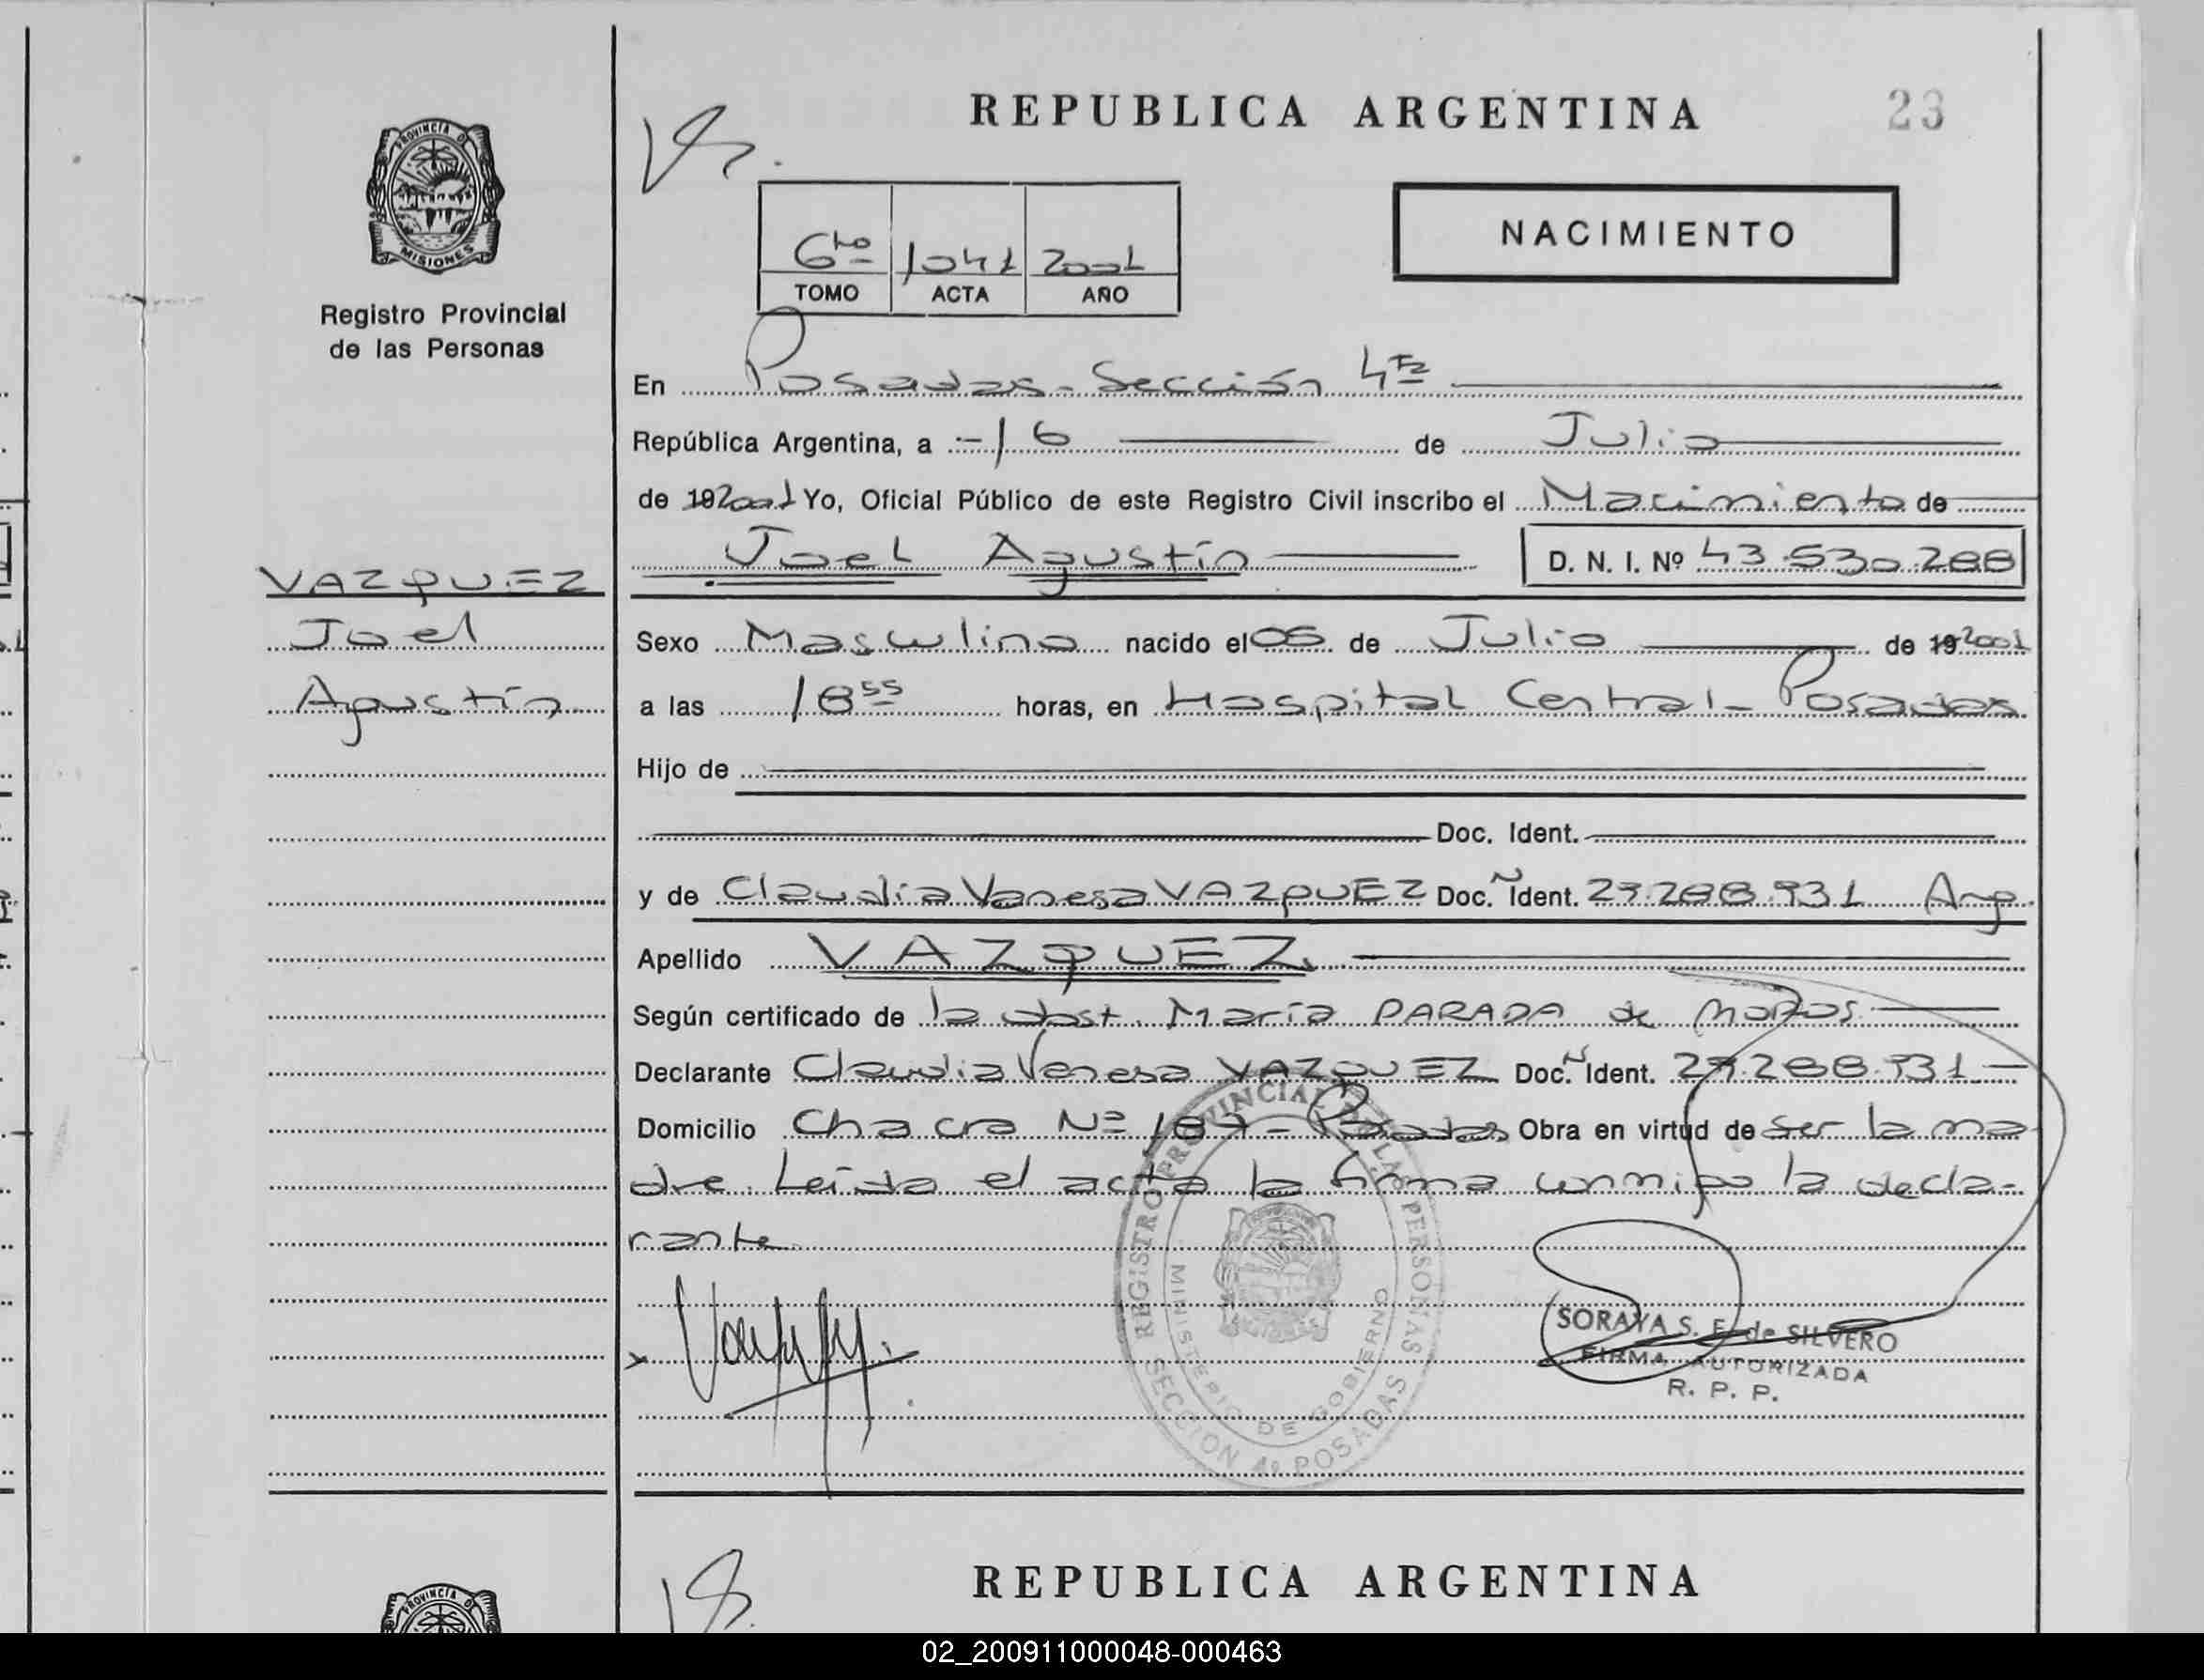 REPUBLICA ARGENTINA
23
PROVINCIA DE
MISIONES
Registro Provincial
de las Personas
6to 1041 2001
TOMO ACTA AÑO
NACIMIENTO
En Posadas - Sección 4ta
República Argentina, a - 16 de Julio
de 192001 Yo, Oficial Público de este Registro Civil inscribo el Nacimiento de
Joel Agustín D. N. I. Nº 43.530.288
VAZQUEZ
Joel
Agustín
Sexo Masculino nacido el 05 de Julio de 192001
a las 18 55 horas, en Hospital Central - Posadas
Hijo de
Doc. Ident.
y de Claudia Vanesa VAZQUEZ Doc. N Ident. 29.288.931 Arg.
Apellido VAZQUEZ
Según certificado de la obst. María PARADA de
Declarante Claudia Vanesa VAZQUEZ Doc. N Ident. 29.288.931
Domicilio Chacra Nº 189 - Posadas Obra en virtud de ser la ma
dre. Leída el acta la firma conmigo la decla-
rante.
REGISTRO PROVINCIAL DE LAS PERSONAS
MINISTERIO DE GOBIERNO
SECCION 4º POSADAS
SORAYA S. F. de SILVERO
FIRMA AUTORIZADA
R. P. P.
REPUBLICA ARGENTINA
PROVINCIA DE
02_200911000048-000463